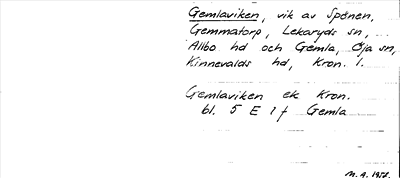 Gemlaviken, vik av Spånen,
Gemmatorp, Lekaryds sn,
Allbo hd och Gemla, Öja sn,
Kinnevalds hd, Kron. l.
Gemlaviken ek Kron.
bl. 5 E 1 f Gemla